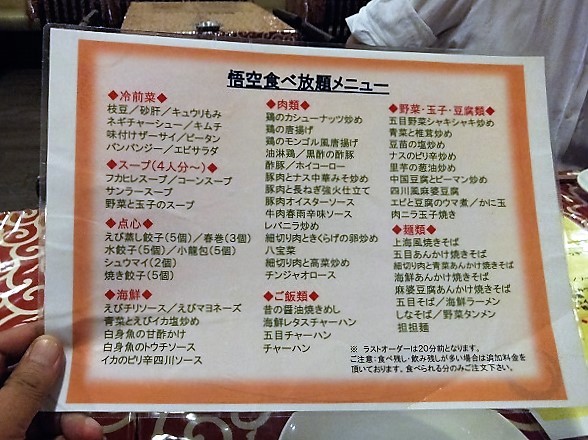 悟空食べ放題メニュー
◆冷前菜◆
枝豆／砂肝／キュウリもみ
ネギチャーシュー／キムチ
味付けザーサイ／ピータン
バンバンジー／エビサラダ
◆スープ(４人分～)◆
フカヒレスープ／コーンスープ
サンラースープ
野菜と玉子のスープ
◆点心◆
えび蒸し餃子(5個)／春巻(3個)
水餃子(5個)／小龍包(5個)
シュウマイ(2個)
焼き餃子(5個)
◆海鮮◆
えびチリソース／えびマヨネーズ
青菜とえびイカ塩炒め
白身魚の甘酢かけ
白身魚のトウチソース
イカのピリ辛四川ソース
◆肉類◆
鶏のカシューナッツ炒め
鶏の唐揚げ
鶏のモンゴル風唐揚げ
油淋鶏／黒酢の酢豚
酢豚／ホイコーロー
豚肉とナス中華みそ炒め
豚肉と長ねぎ強火仕立て
豚肉オイスターソース
牛肉春雨辛味ソース
レバニラ炒め
細切り肉ときくらげの卵炒め
八宝菜
細切り肉と高菜炒め
チンジャオロース
◆ご飯類◆
昔の醤油焼きめし
海鮮レタスチャーハン
五目チャーハン
チャーハン
◆野菜・玉子・豆腐類◆
五目野菜シャキシャキ炒め
青菜と椎茸炒め
豆苗の塩炒め
ナスのピリ辛炒め
里芋の葱油炒め
中国豆腐とピーマン炒め
四川風麻婆豆腐
エビと豆腐のうま煮／かに玉
肉ニラ玉子焼き
◆麺類◆
上海風焼きそば
五目あんかけ焼きそば
細切り肉と青菜あんかけ焼きそば
海鮮あんかけ焼きそば
麻婆豆腐あんかけ焼きそば
五目そば／海鮮ラーメン
しなそば／野菜タンメン
担担麺
※ ラストオーダーは20分前となります。
ご注意：食べ残し・飲み残しが多い場合は追加料金を
頂いております。食べられる分のみご注文下さい。